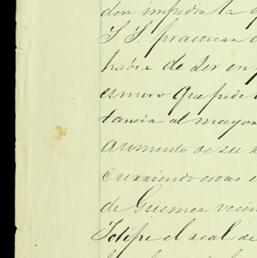 don impedia la
S. S. practican
habia de ser en
esmero que pide
tancia al mayor
aumento de su
curriendo estas
de Güemes vecin
el real de